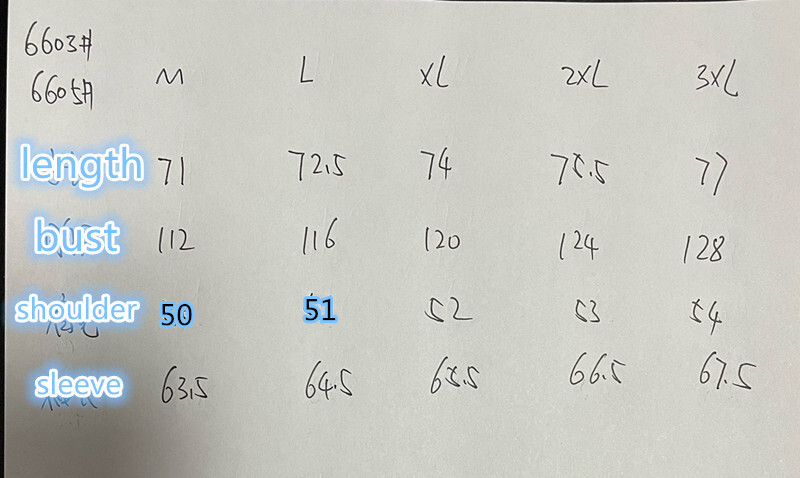 6603#
6605# M L XL 2XL 3XL
length 71 72.5 74 75.5 77
bust 112 116 120 124 128
shoulder 50 51 52 53 54
sleeve 63.5 64.5 65.5 66.5 67.5